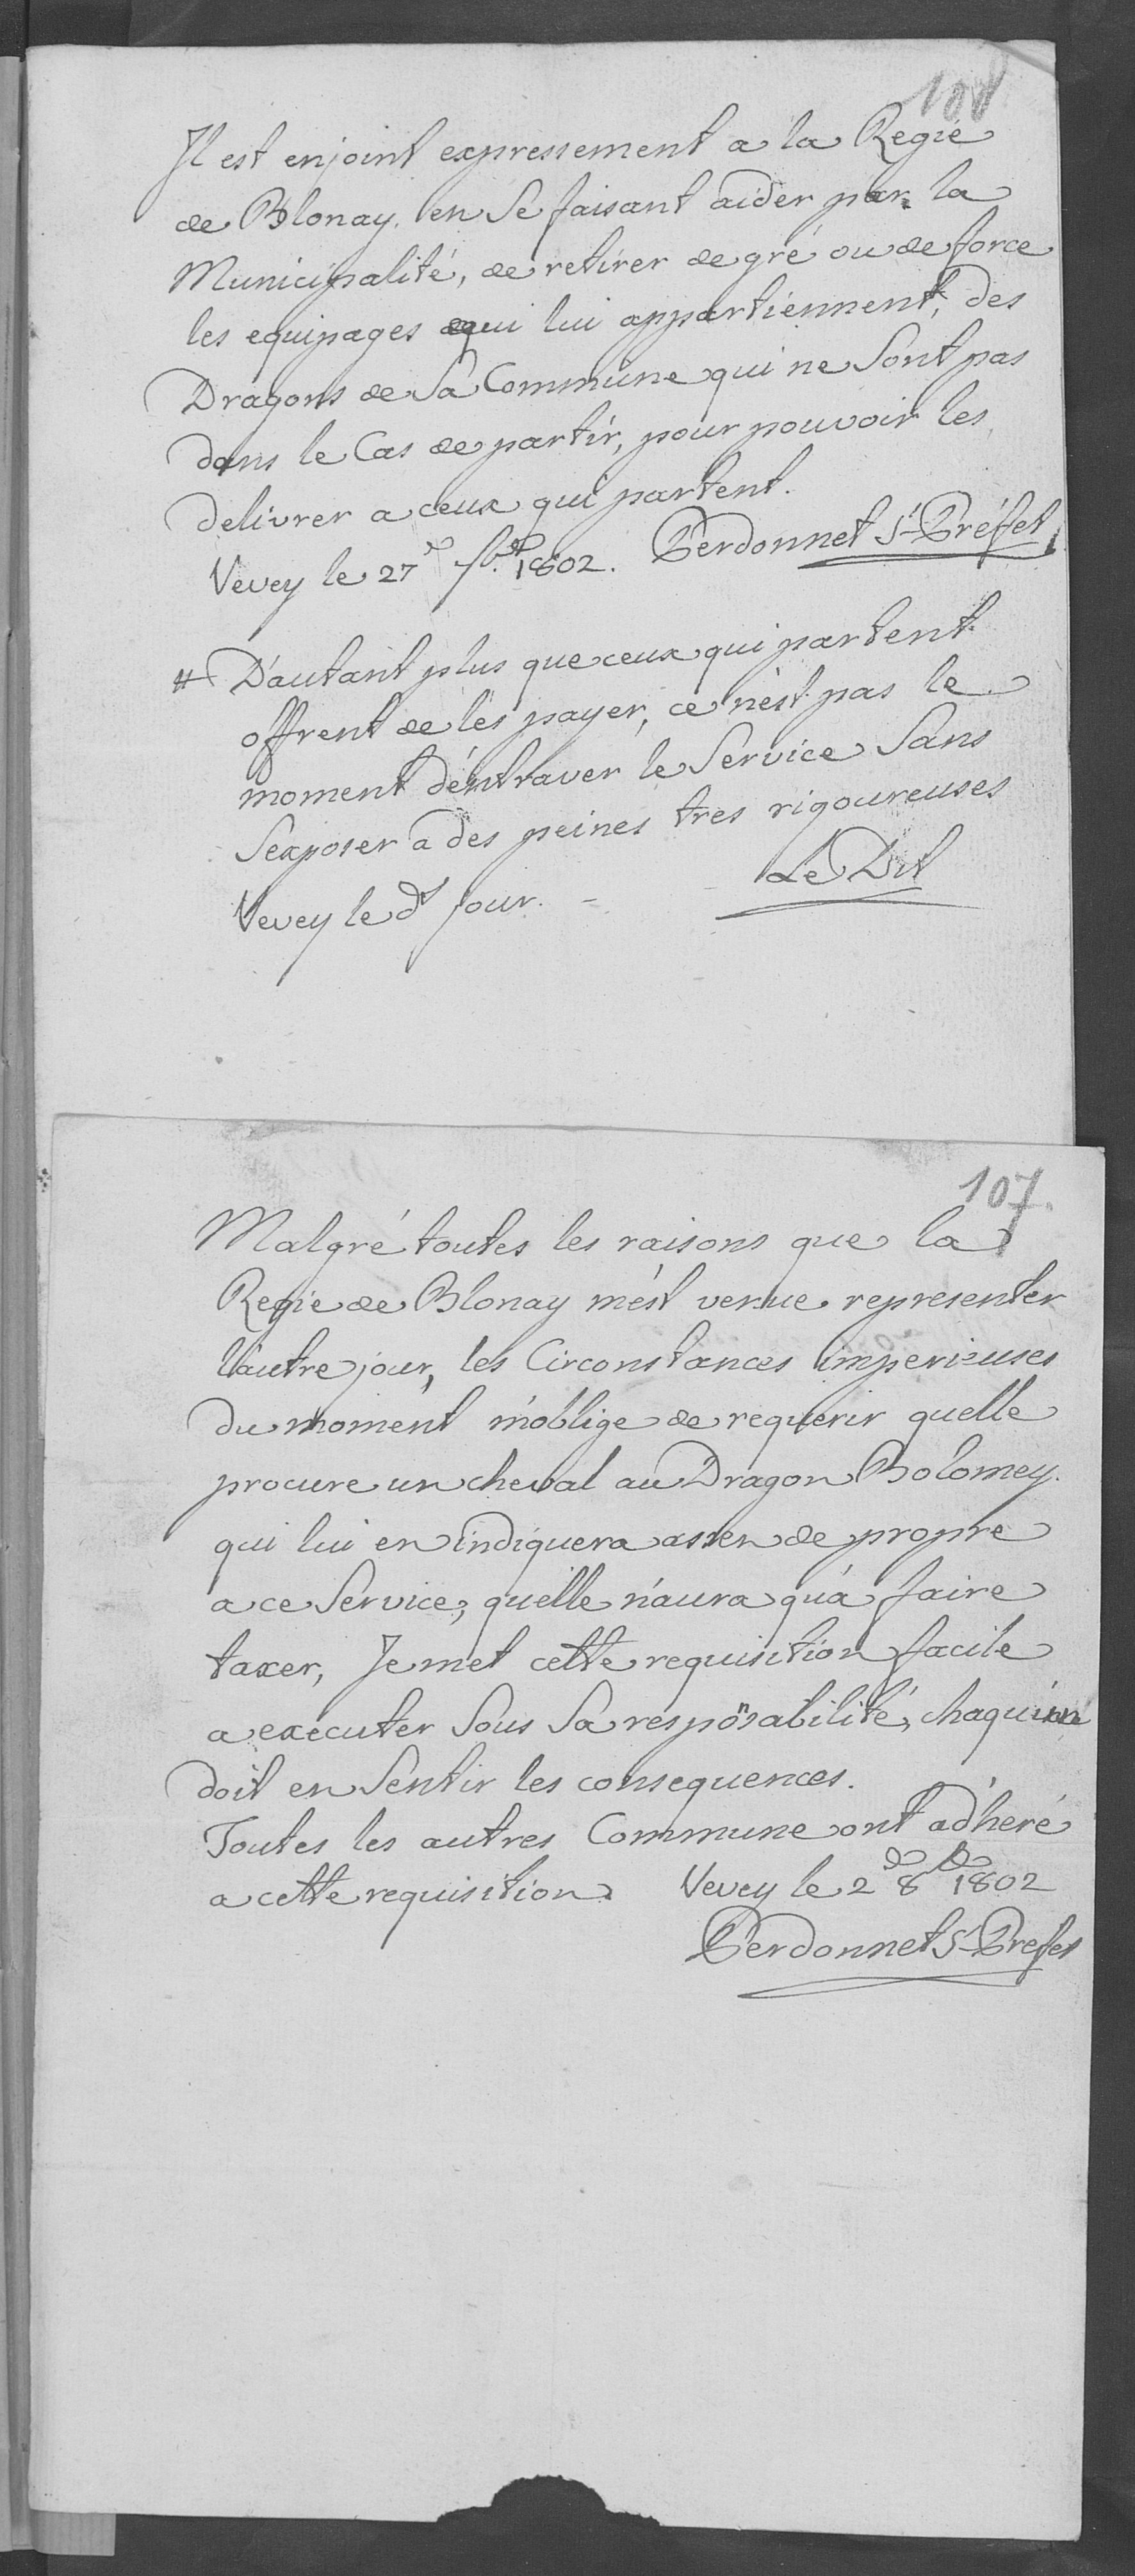 108
Il est enjoint expressement a la Regie
de Blonay, en Se faisant aider par la
Municipalité, de retirer de gré ou de force
les equipages qui lui appartiennent, # des
Dragons de Sa Commune qui ne Sont pas
dans le Cas de partir, pour pouvoir les
delivrer a ceux qui partent.
Vevey le 27 7bre 1802. Perdonnet S-Préfet
# D'autant plus que ceux qui partent
offrent de les payer, ce n'est pas le
moment d'entraver le Service Sans
S'exposer a des peines tres rigoureuses
Vevey le dt jour. - Le Dit
107.
Malgré toutes les raisons que la
Regie de Blonay m'est venue representer
l'autre jour, les Circonstances imperieuses
du moment m'oblige de requerir quelle
procure un cheval au Dragon Bolomey.
qui lui en indiquera assen de propre
a ce Service, quelle n'aura qu'a faire
taxer, Je met cette requisition facile
a executer Sous Sa responsabilité, chaqu'une
doit en Sentir les consequences.
Toutes les autres Commune ont adheré
a cette requisition. Vevey le 2 8bre 1802
Perdonnet S-Prefet